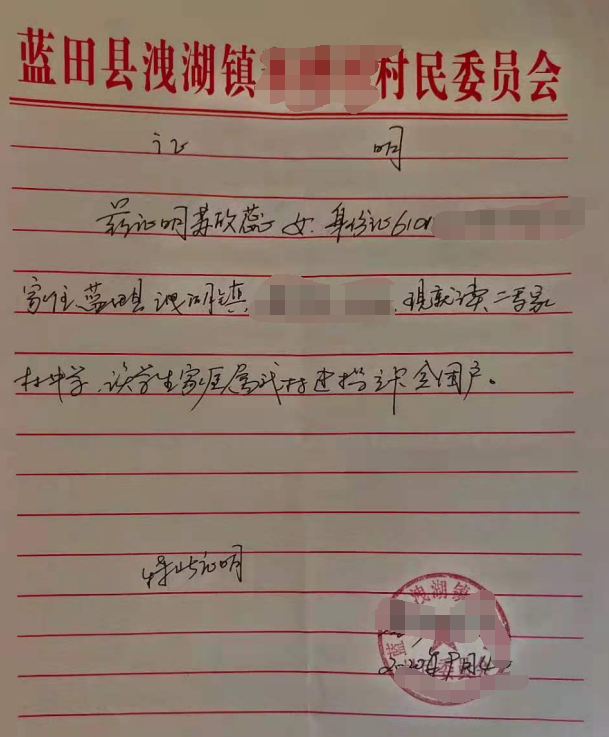 蓝田县洩湖镇 村民委员会
证 明
兹证明苏欣蕊 女 身份证6101
家住蓝田县洩湖镇 现就读
村中学,该学生家庭属我村建档立卡贫困户。
特此证明
洩湖镇
蓝